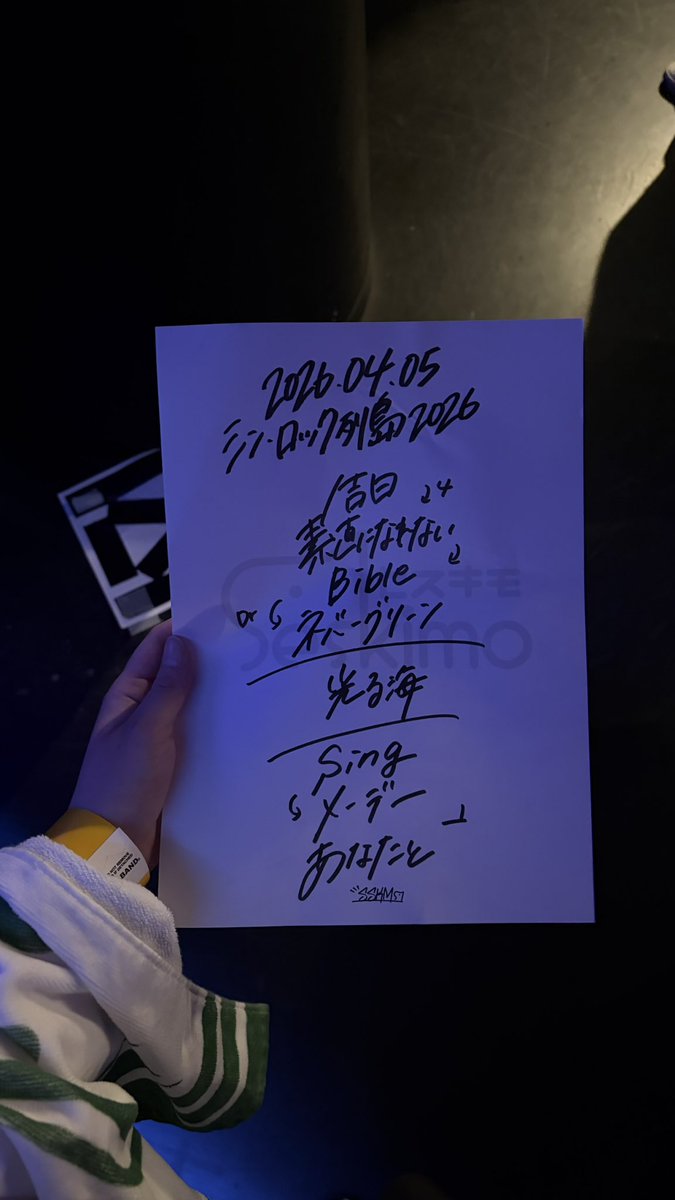 2026.04.05
シン・ロック列島2026
告白 ↓4
素直になれない
Bible
or ネバーグリーン
エスキモ
Seskimo
光る海
Sing
メーデー
あなたと
SSHM57
BAND.